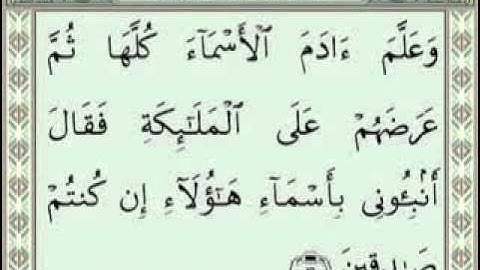 وَعَلَّمَ ءَادَمَ ٱلْأَسْمَآءَ كُلَّهَا ثُمَّ
عَرَضَهُمْ عَلَى ٱلْمَلَـٰٓئِكَةِ فَقَالَ
أَنۢبِـُٔونِى بِأَسْمَآءِ هَـٰٓؤُلَآءِ إِن كُنتُمْ
صَـٰدِقِينَ